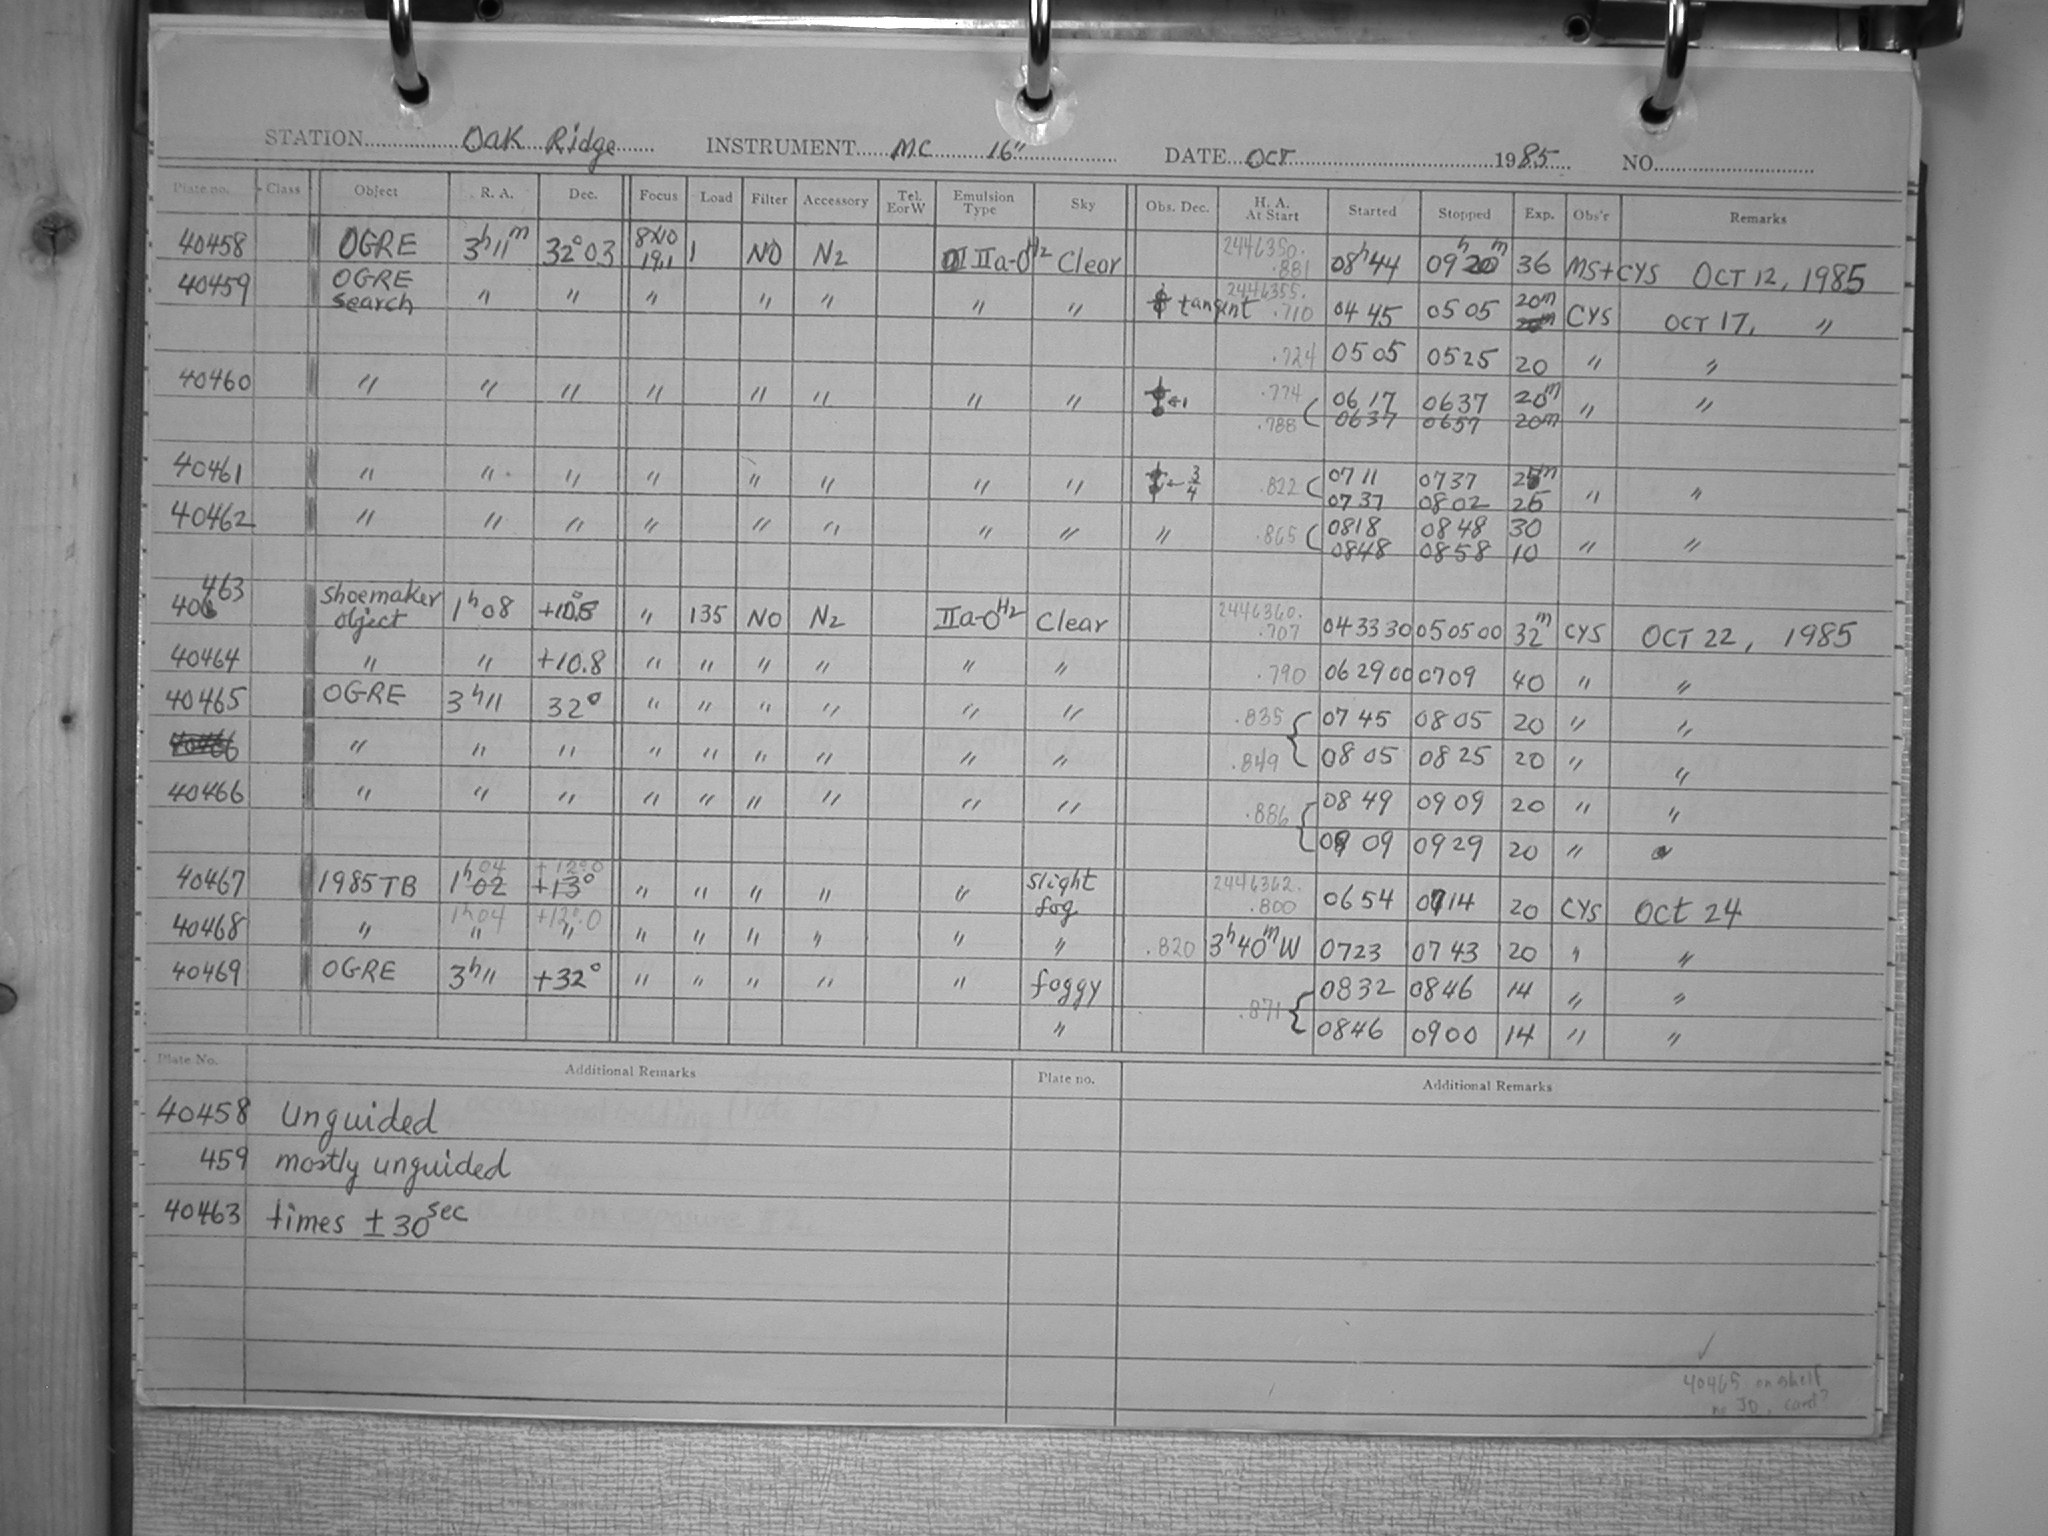 STATION Oak Ridge INSTRUMENT MC 16" DATE OCT 1985 NO.
Plate no. Class Object R. A. Dec. Focus Load Filter Accessory Tel. EorW Emulsion Type Sky Obs. Dec. H. A. At Start Started Stopped Exp. Obs'r Remarks
40458 OGRE 3h11m 32°03 8X10 19.1 1 NO N2 IIa-O H2 Clear 2446350. .881 08h44 09h20m 36 MS+CYS OCT 12, 1985
40459 OGRE search " " " " " " " tangent 2446355. .710 04 45 05 05 20m CYS OCT 17, "
.724 05 05 05 25 20 " "
40460 " " " " " " " " ←1 .774 06 17 06 37 20m " "
.788 06 37 06 57 20m
40461 " " " " " " " " ← 3/4 .822 07 11 07 37 25m " "
07 37 08 02 25
40462 " " " " " " " " " .865 0818 08 48 30 " "
0848 0858 10
40463 Shoemaker object 1h08 +10.5° " 135 NO N2 IIa-O H2 Clear 2446360. .707 04 33 30 05 05 00 32m CYS OCT 22, 1985
40464 " " +10.8 " " " " " " .790 06 29 00 0709 40 " "
40465 OGRE 3h11 32° " " " " " " .835 07 45 08 05 20 " "
40466 " " " " " " " " " .849 08 05 08 25 20 " "
40466 " " " " " " " " " .886 08 49 09 09 20 " "
09 09 09 29 20 "
40467 1985 TB 1h04 02 +12°.0 +13° " " " " " slight fog 2446362. .800 06 54 0714 20 CYS OCT 24
40468 " 1h04 " +12°.0 " " " " " " " .820 3h40m W 0723 07 43 20 " "
40469 OGRE 3h11 +32° " " " " " foggy .871 0832 0846 14 " "
" 0846 0900 14 " "
Plate No. Additional Remarks Plate no. Additional Remarks
40458 unguided
459 mostly unguided
40463 times ± 30 sec
40465 on shelf
no JD, card?